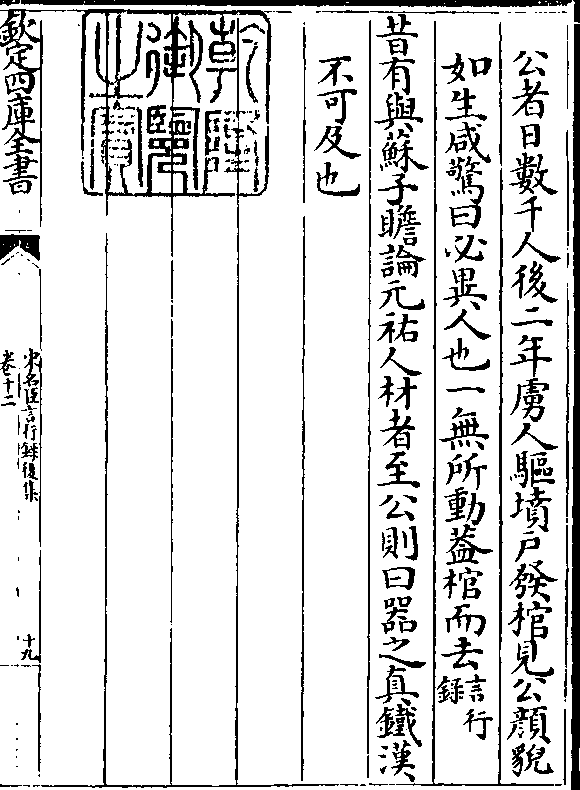 公者日數千人後二年虜人驅墳戸發棺見公顔貌
如生咸驚曰必異人也一無所動葢棺而去言行錄
昔有與蘇子瞻論元祐人材者至公則曰器之真鐵漢
不可及也
乾隆御覽之寶
欽定四庫全書
宋名臣言行錄後集
卷十二
十九